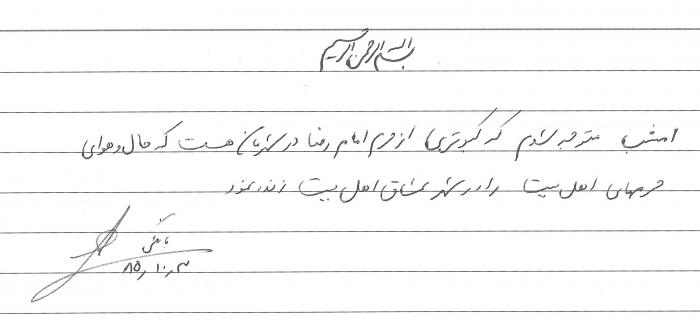 بسم الله الرحمن الرحیم
امشب متوجه شدم که کبوتری از حرم امام رضا در شهرمان هست که حال و هوای
حرمهای اهل بیت را در شهر عشاق اهل بیت زنده نمود
۸۵٫۱۰٫۳